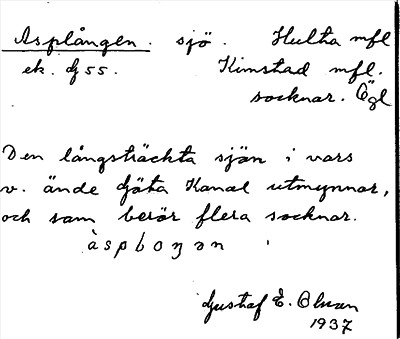 Asplången. sjö. Hulta mfl
ek. G 55. Kimstad mfl.
socknar. Ögl
Den långsträckta sjön i vars
v. ände Göta Kanal utmynnar,
och som berör flera socknar.
àspboŋən
Gustaf E. Olsson
1937